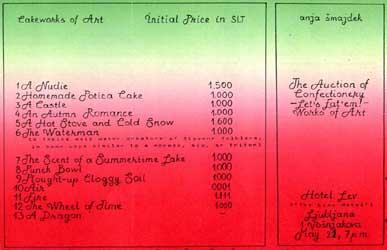 Cakeworks of Art Initial Price in SLT
1 A Nudie 1,500
2 Homemade Potica Cake 1,000
3 A Castle 1,000
4 An Autmn Romance 1,000
5 A Hot Stove and Cold Snow 1,600
6 The Waterman 1,000
7 The Scent of a Summertime Lake 1,000
8 Punch Bowl 1,000
9 Plought-up Cloggy Soil 1,000
10 Air 0001
11 Fire 1,111
12 The Wheel of Time
13 A Dragon
anja šmajdek
The Auction of
Confectionery
-Let's Eat'em!-
Works of Art
Hotel Lev
Ljubljana
1 Vošnjakova
May 22, 7 p.m.